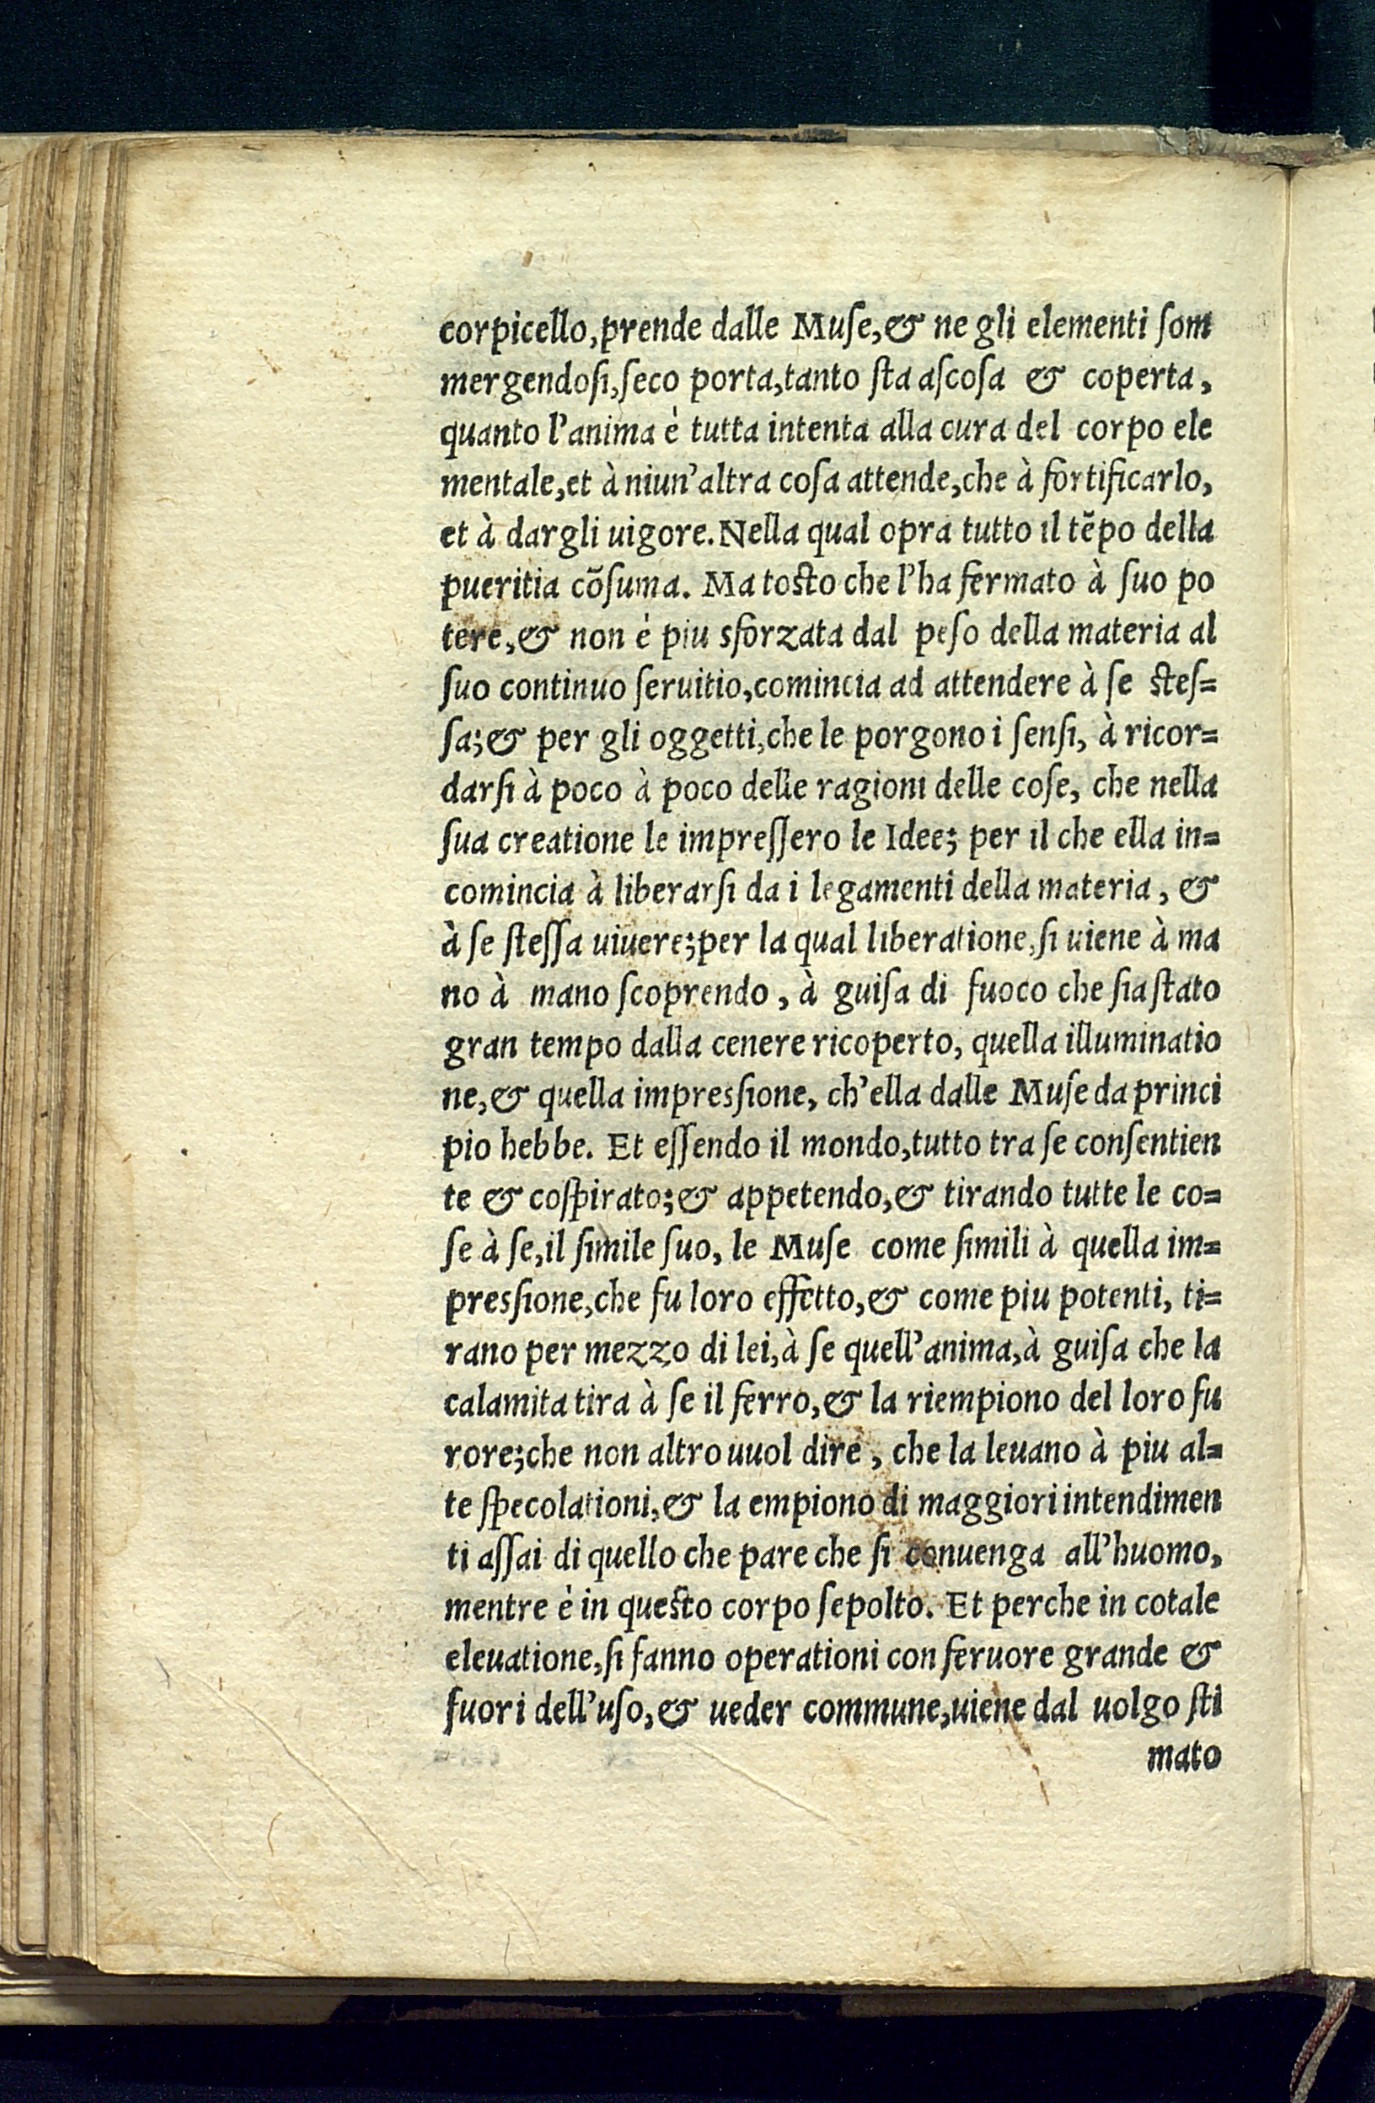 corpicello,prende dalle Muſe,& ne gli elementi ſom
mergendoſi,ſeco porta,tanto ſta aſcoſa & coperta,
quanto l'anima è tutta intenta alla cura del corpo ele
mentale,et à niun'altra coſa attende,che à fortificarlo,
et à dargli uigore.Nella qual opra tutto il tẽpo della
pueritia cõſuma. Ma toſto che l'ha fermato à ſuo po
tere,& non è piu sforzata dal peſo della materia al
ſuo continuo ſeruitio,comincia ad attendere à ſe ſteſ=
ſa;& per gli oggetti,che le porgono i ſenſi, à ricor=
darſi à poco à poco delle ragioni delle coſe, che nella
ſua creatione le impreſſero le Idee; per il che ella in=
comincia à liberarſi da i legamenti della materia, &
à ſe ſteſſa uiuere;per la qual liberatione,ſi uiene à ma
no à mano ſcoprendo, à guiſa di fuoco che ſia ſtato
gran tempo dalla cenere ricoperto, quella illuminatio
ne,& quella impresſione, ch'ella dalle Muſe da princi
pio hebbe. Et eſſendo il mondo,tutto tra ſe conſentien
te & coſpirato;& appetendo,& tirando tutte le co=
ſe à ſe,il ſimile ſuo, le Muſe come ſimili à quella im=
presſione,che fu loro effetto,& come piu potenti, ti=
rano per mezzo di lei,à ſe quell'anima,à guiſa che la
calamita tira à ſe il ferro,& la riempiono del loro fu
rore;che non altro uuol dire, che la leuano à piu al=
te ſpecolationi,& la empiono di maggiori intendimen
ti aſſai di quello che pare che ſi conuenga all'huomo,
mentre è in queſto corpo ſepolto. Et perche in cotale
eleuatione,ſi fanno operationi con feruore grande &
fuori dell'uſo,& ueder commune,uiene dal uolgo ſti
mato